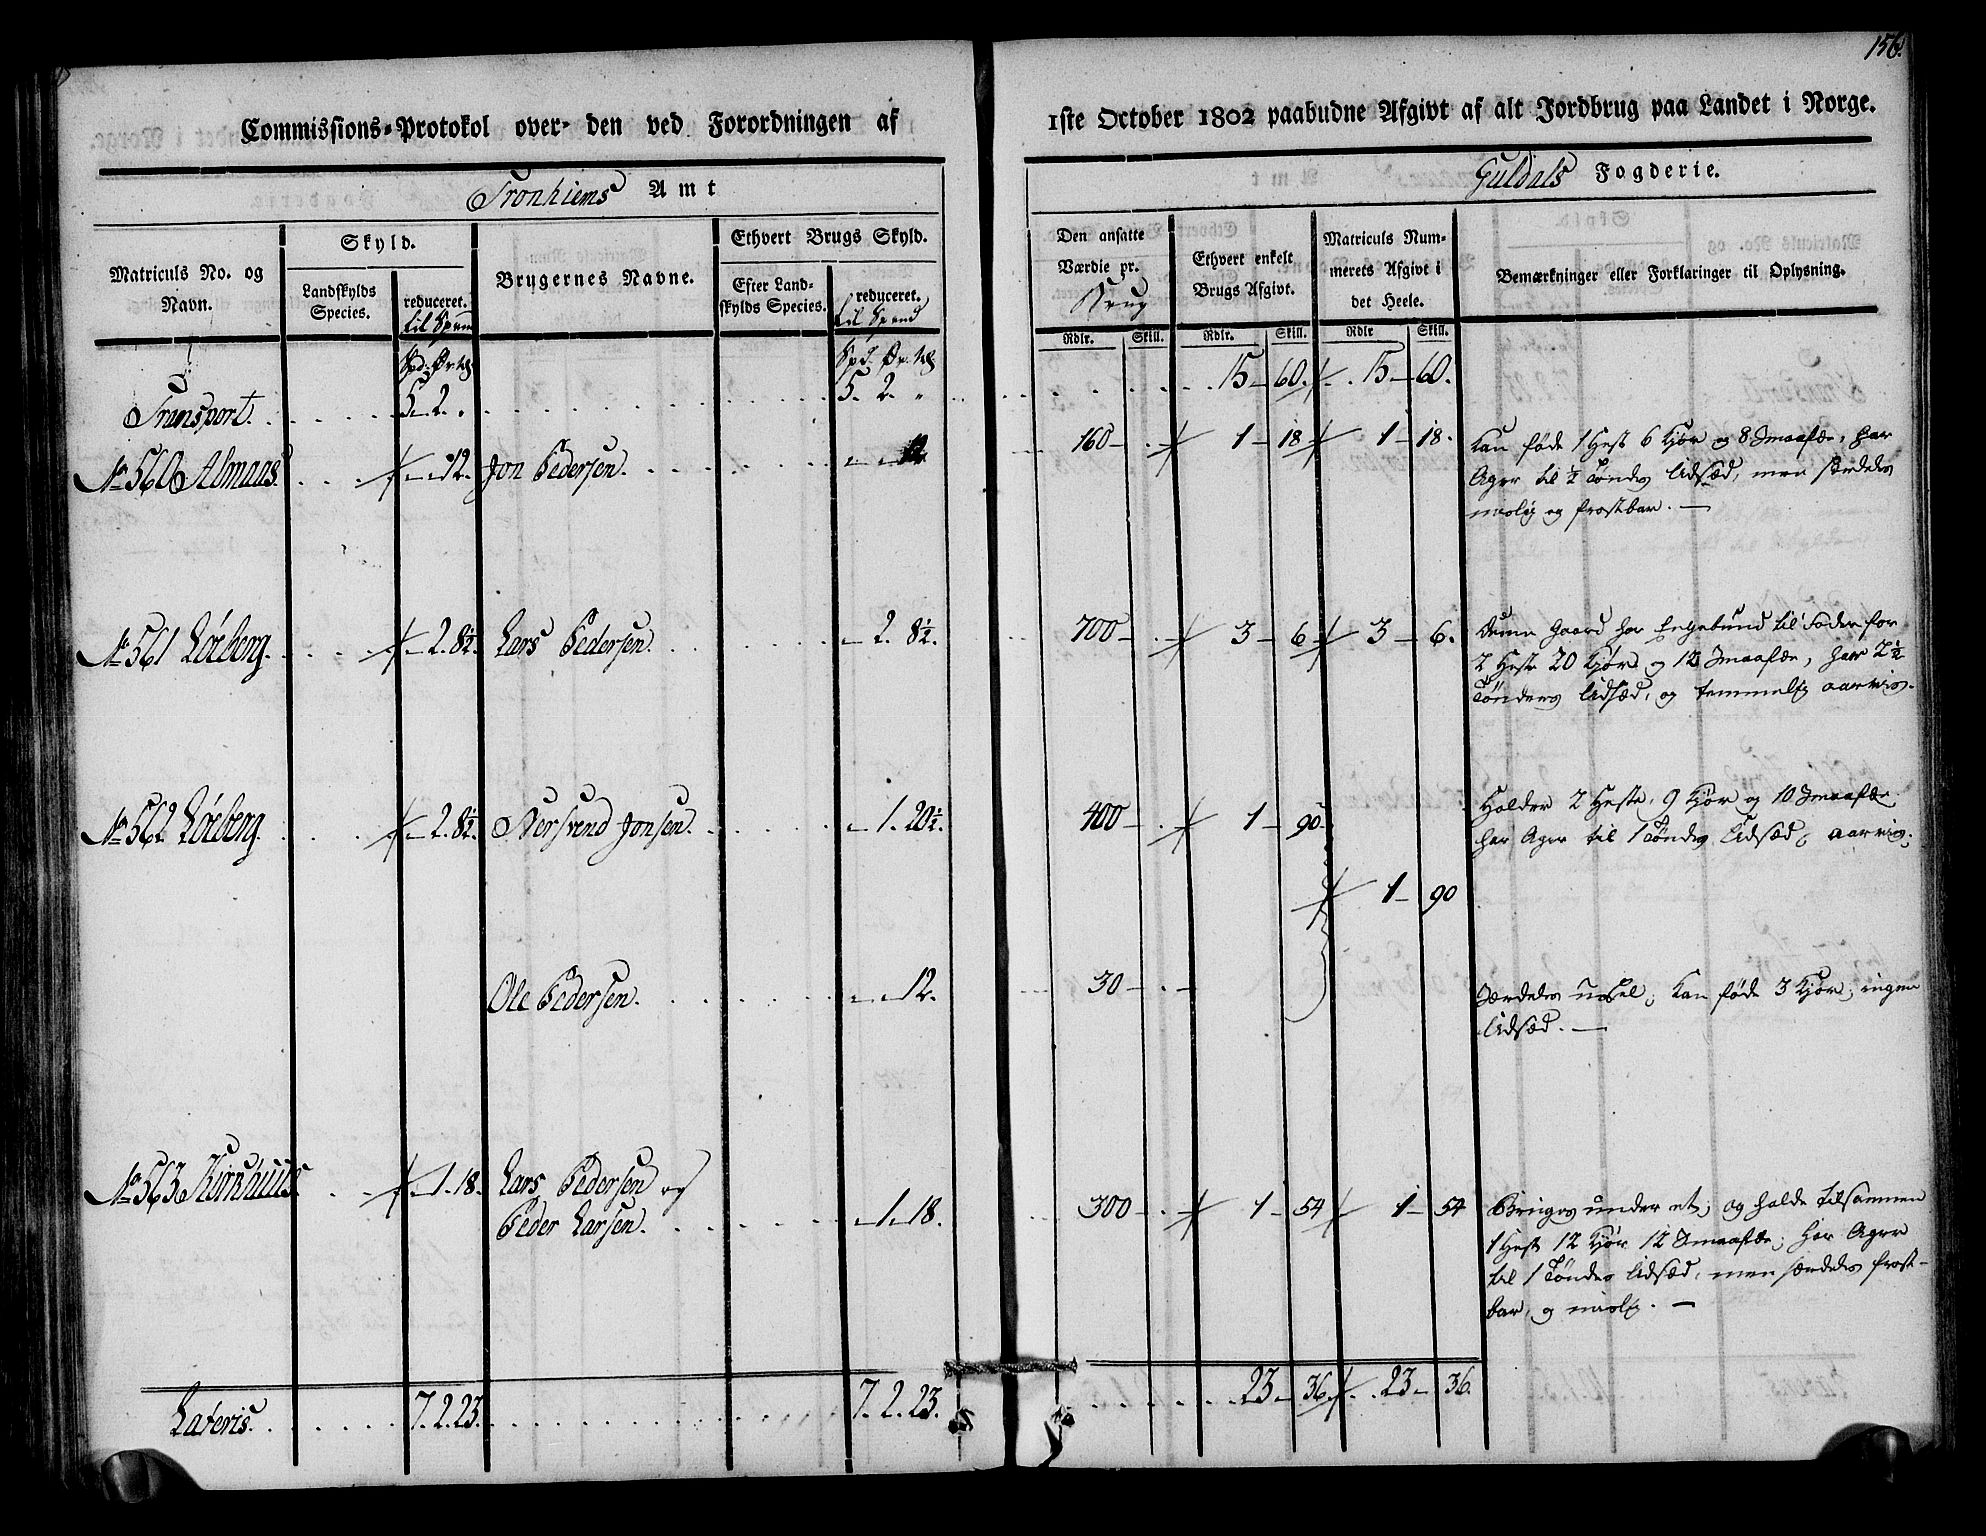 156.
Commissions-Protokol over den ved Forordningen af 1ste October 1802 paabudne Afgivt af alt Jordbrug paa Landet i Norge.
Tronhiems Amt
Guldals Fogderie.
Matriculs No. og Navn.
Skyld.
Landskylds Species.
reduceret.
til Spand
Brugernes Navne.
Ethvert Brugs Skyld.
Efter Landskylds Species.
reduceret.
til Spand
Den ansatte Værdie pr.
Brug
Ethvert enkelt Brugs Afgivt.
Matriculs Nummerets Afgivt i det Heele.
Bemærkninger eller Forklaringer til Oplysning.
Rdlr. Skill. Rdlr. Skill. Rdlr Skill.
Transport. 5. 2. " 5. 2. " 15 - 60. 15 - 60.
No 560 Almaas. 12. Jon Pedersen. 12 160 - 1 - 18 1 - 18.
Kan føde 1 Hest 6 Kjør og 8 Smaafæ, har
Ager til ½ Tøndes Udsæd, men særdeles
miolig og frostbar. —
No 561 Løeberg. 2. 8½. Lars Pedersen. 2. 8½. 700 - 3 - 6 3 - 6.
Denne Gaard har Engebund til Foder for
2 Heste 20 Kjør og 12 Smaafæ, har 2½
Tønders Udsæd, og temmelig aarvis.
No 562 Løeberg. 2. 8½. Nersvend Jonsen. 1. 20½. 400 - 1 - 90
Holder 2 Heste, 9 Kjør og 10 Smaafæ
har Ager til 1 Tøndes Udsæd, aarvis.
1 - 90
Ole Pedersen. 12. 30 -
Særdeles ussel; kan føde 3 Kjør; ingen
Udsæd. —
No 563 Kirkhuus. 1. 18. Lars Pedersen og
Peder Larsen. 1. 18. 300 - 1 - 54 1 - 54
Bruges under et; og holde tilsammen
1 Hest 12 Kjør 12 Smaafæ; har Ager
til 1 Tøndes Udsæd, men særdeles frost-
bar, og miolig. —
Lateris. 7. 2. 23. 7. 2. 23. 23 - 36 23 - 36.